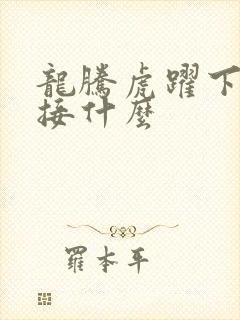 龍騰虎躍下
接什麼
羅本平